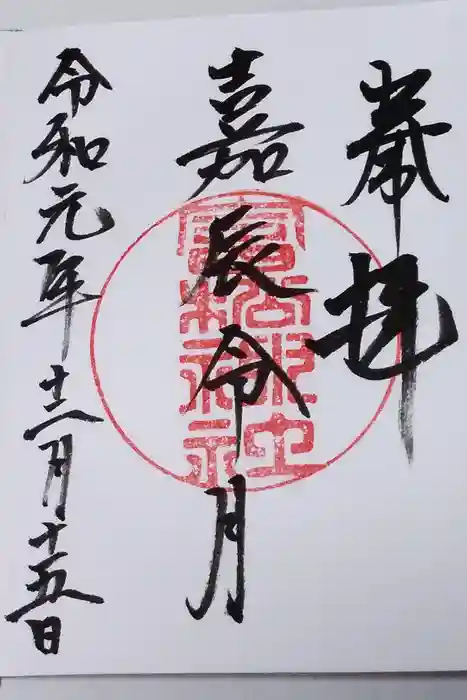 奉拝
嘉辰令月
令和元年十二月十五日